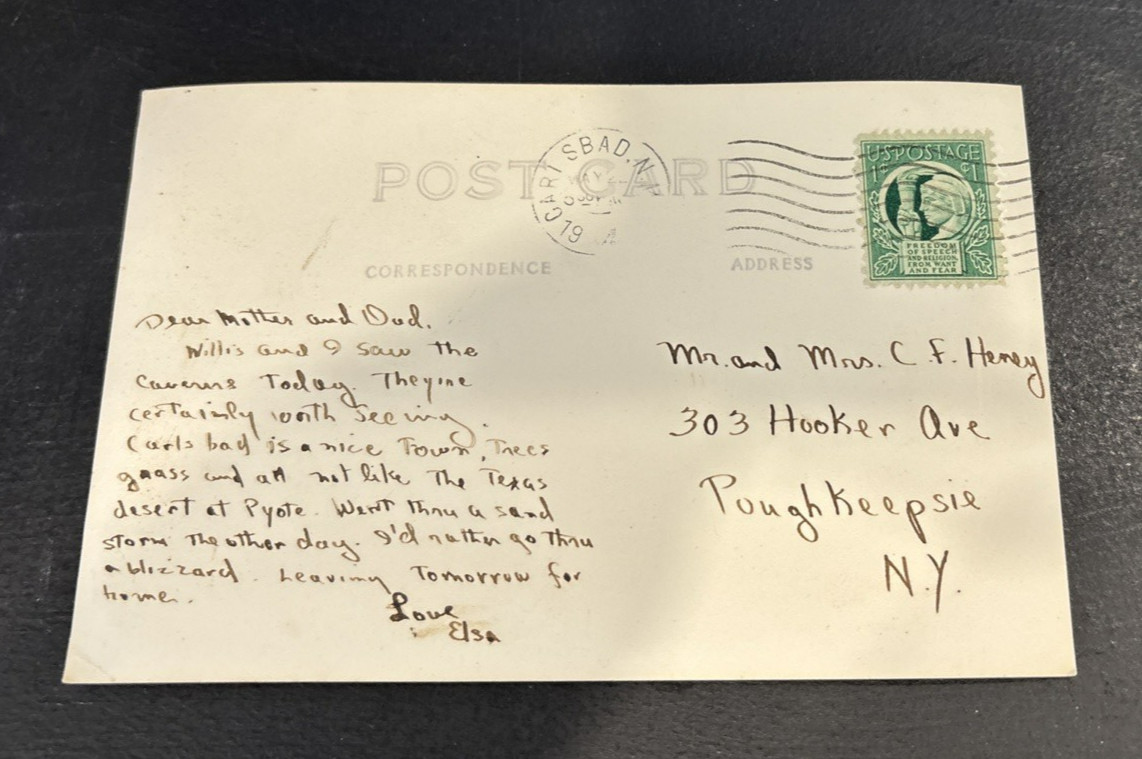 POST CARD
CARLSBAD, N.
MAY
19
US POSTAGE
1¢ ¢1
FREEDOM
OF SPEECH
AND RELIGION,
FROM WANT
AND FEAR
CORRESPONDENCE
ADDRESS
Dear Mother and Dad.
Willis and I saw the
Caverns Today. They're
certainly worth seeing.
Carlsbad is a nice Town, Trees
grass and all not like The Texas
desert at Pyote. Went thru a sand
storm The other day. I'd rather go thru
a blizzard. Leaving Tomorrow for
home.
Love
Elsa
Mr. and Mrs. C. F. Heney
303 Hooker Ave
Poughkeepsie
N.Y.